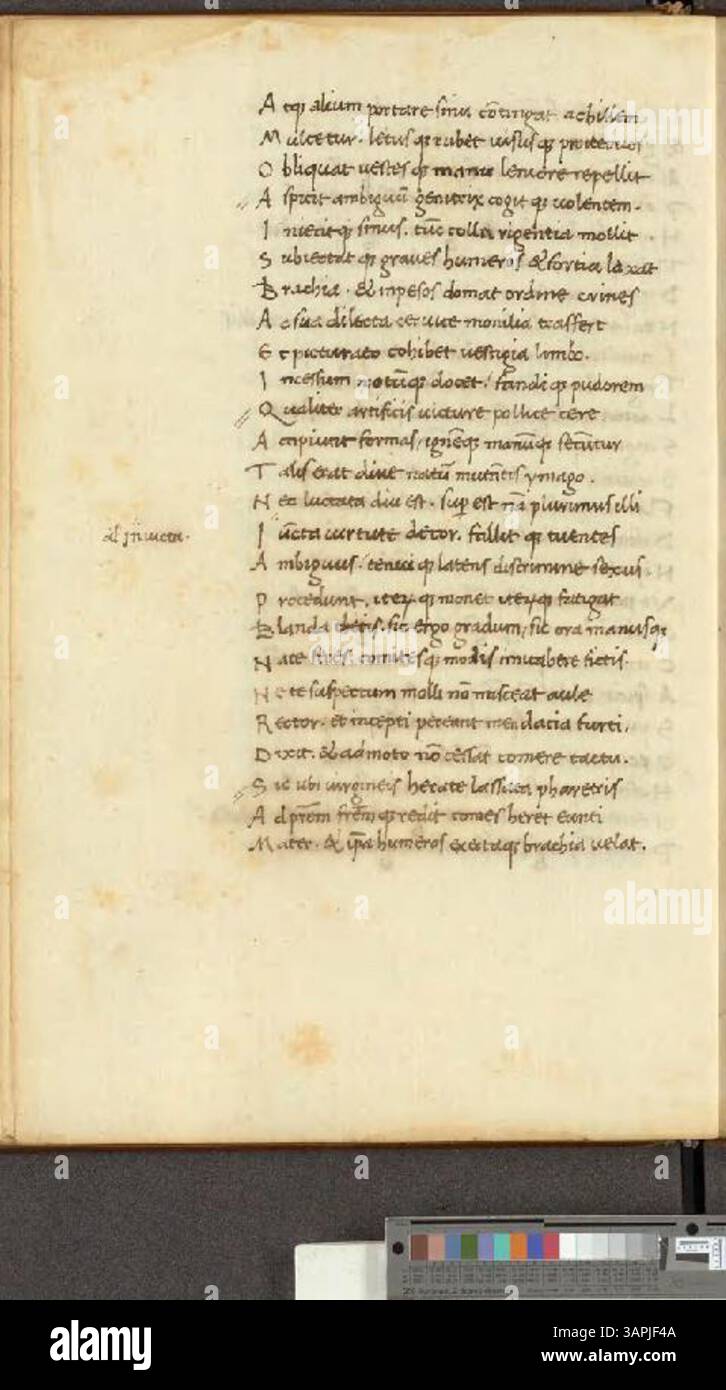 A tq; alium portare sinu contingat achillem
M ulcetur. letusq; rubet uisusq; proteruos
O bliquat uestesq; manu leuiore repellit
A spicit ambiguū genitrix cogitq; uolentem.
I niecitq; sinus. tūc colla rigentia mollit
S ubiectatq; graues humeros & fortia laxat
B rachia. & inpexos domat ordine crines
A c sua dilecta ceruice monilia trasfert
E t picturato cohibet uestigia limbo.
I ncessum motūq; docet. fandiq; pudorem
Q ualiter artificis uicture pollice cere
A ccipiunt formas, ignēq; manūq; secūtur
T alis erat diue natū mutātis ymago.
N ec luctata diu est. sup est nā plurimus illi
al inuicta.
I uncta uirtute decor. fallitq; tuentes
A mbiguus. tenuiq; latens discrimine sexus.
P rocedunt, iterq; monet iterq; fatigat
B landa sic ergo gradum, sic ora manusq;
N ate feres comitesq; modis imitabere fictis.
N e te suspectum molli nō misceat aule
R ector. et incepti pereant mendacia furti,
D ixit. & admoto nō cessat comere tactu.
S ic ubi uirgineis hecate lassata pharetris
A d prem fremq; redit comes heret eunti
M ater. & ipa humeros exertaq; brachia uelat.
alamy
Image ID: 3APJF4A
www.alamy.com